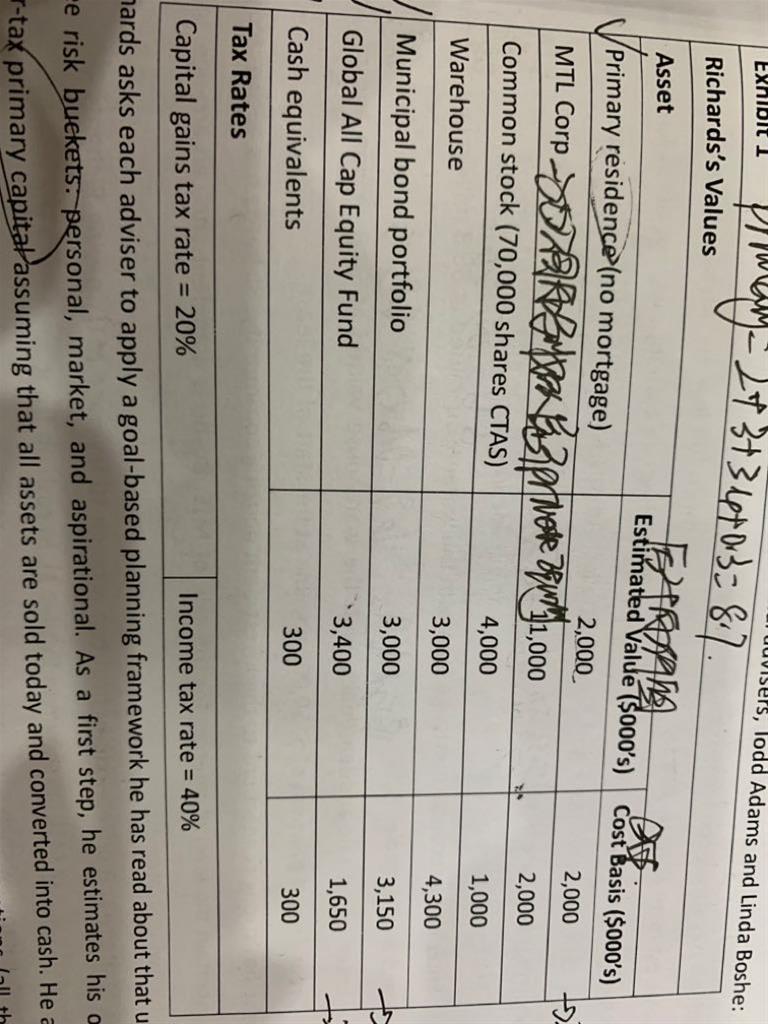 Exhibit 1
advisers, Todd Adams and Linda Boshe:
2+3+3.4+0.3=8.7.
Richards's Values
Asset Estimated Value ($000's) Cost Basis ($000's)
Primary residence (no mortgage) 2,000 2,000
MTL Corp 11,000 2,000
Common stock (70,000 shares CTAS) 4,000 1,000
Warehouse 3,000 4,300
Municipal bond portfolio 3,000 3,150
Global All Cap Equity Fund 3,400 1,650
Cash equivalents 300 300
Tax Rates
Capital gains tax rate = 20% Income tax rate = 40%
hards asks each adviser to apply a goal-based planning framework he has read about that u
ee risk buckets: personal, market, and aspirational. As a first step, he estimates his o
r-tax primary capital assuming that all assets are sold today and converted into cash. He a